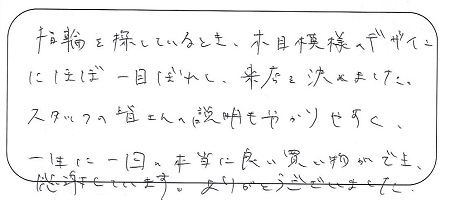 指輪を探しているとき、木目模様のデザイン
にほぼ一目ぼれし、来店を決めました。
スタッフの皆さんの説明も分かりやすく、
一生に一回の本当に良い買い物ができ、
感謝しています。ありがとうございました。